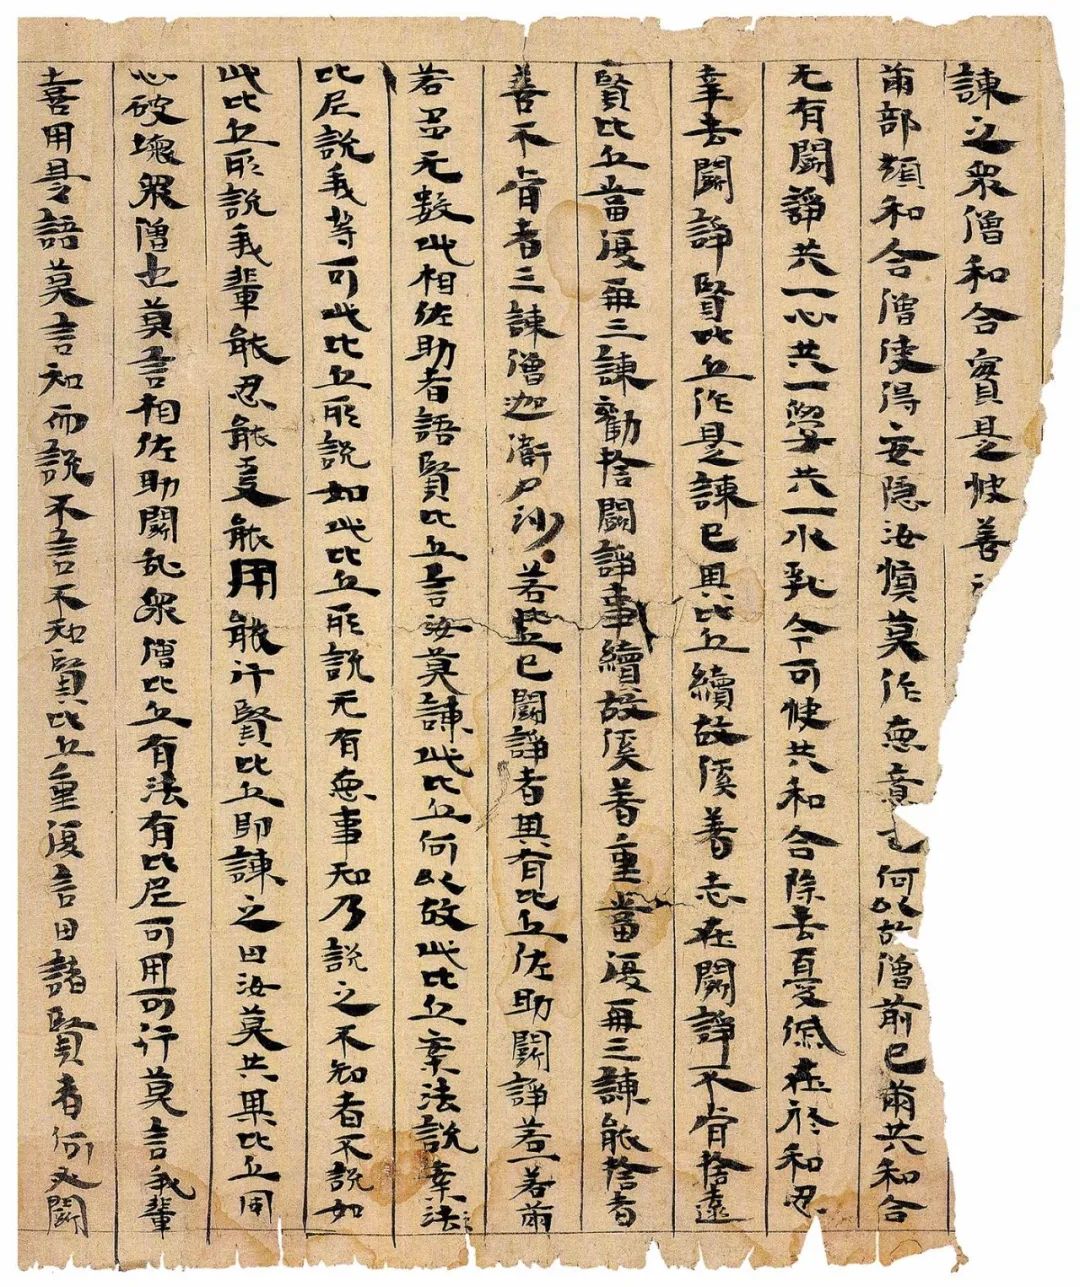 諫之衆僧和合實是快善
爾部類和合僧使得安隱汝慎莫作惡意也何以故僧前已爾共和合
无有鬪諍共一心共一學共一水乳今可快共和合除去憂慼在於和忍
幸去鬪諍賢比丘作是諫已其比丘續故溪著志在鬪諍不肯捨遠
賢比丘當復再三諫勸捨鬪諍事續故溪著重當復再三諫能捨者
善不肯者三諫僧迦衛尸沙若比丘已鬪諍者其有比丘佐助鬪諍若一若兩
若三若无數此相佐助者語賢比丘言汝莫諫此比丘何以故此比丘案法說案法
比尼說我等可此比丘所說如此比丘所說无有惡事知乃說之不知者不說如
此比丘所說我輩能忍能受能用能行賢比丘即諫之曰汝莫共異比丘同
心破壞衆僧也莫言相佐助鬪亂衆僧比丘有法有比尼可用可行莫言我輩
喜用是語莫言知而說不言不知賢比丘重復言曰諸賢者何又鬪